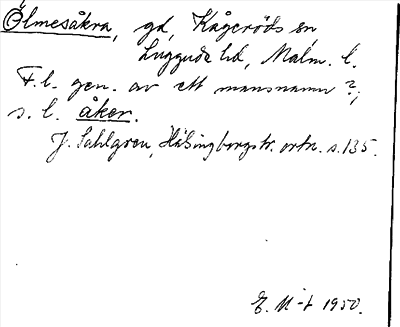 Ölmesåkra, gd, Kågeröds sn
Luggude hd, Malm. l.
F.l. gen. av ett mansnamn ?;
s. l. åker.
J. Sahlgren, Hälsingborgstr. ortn. s. 135.
E. M-t 1950.